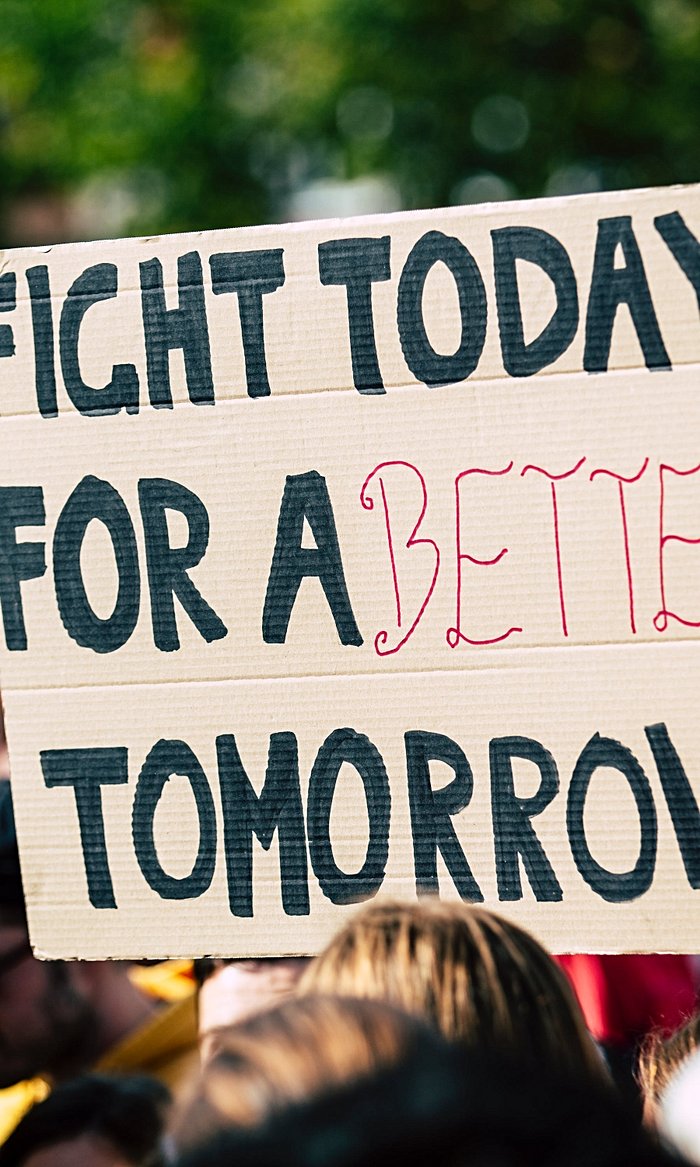 FIGHT TODAY
FOR A BETTE
TOMORROW